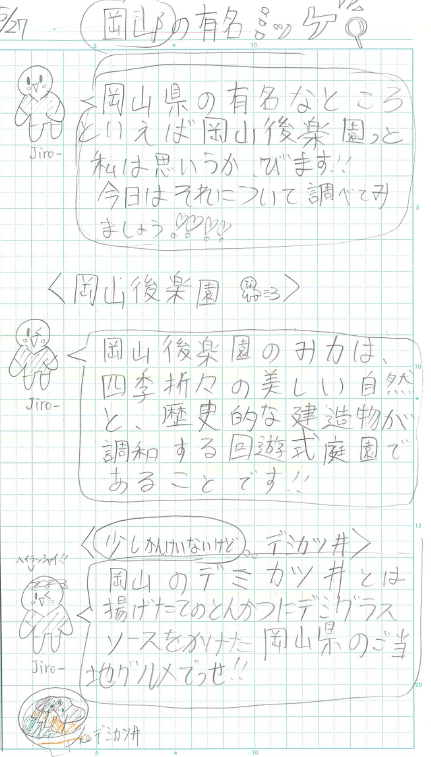 5/27
岡山の有名ミッケ
岡山県の有名なところ
といえば岡山後楽園っと
私は思いうかびます!!
今日はそれについて調べてみ
ましょう
Jiro-
<岡山後楽園>
岡山後楽園のみ力は、
四季折々の美しい自然
と、歴史的な建造物が
調和する回遊式庭園で
あることです!!
Jiro-
<少しかんけいないけど。。デミカツ丼>
ヘイラッシャイ!!
岡山のデミカツ丼とは
揚げたてのとんかつにデミグラス
ソースをかけた岡山県のご当
地グルメでっせ!!
Jiro-
デミカツ丼